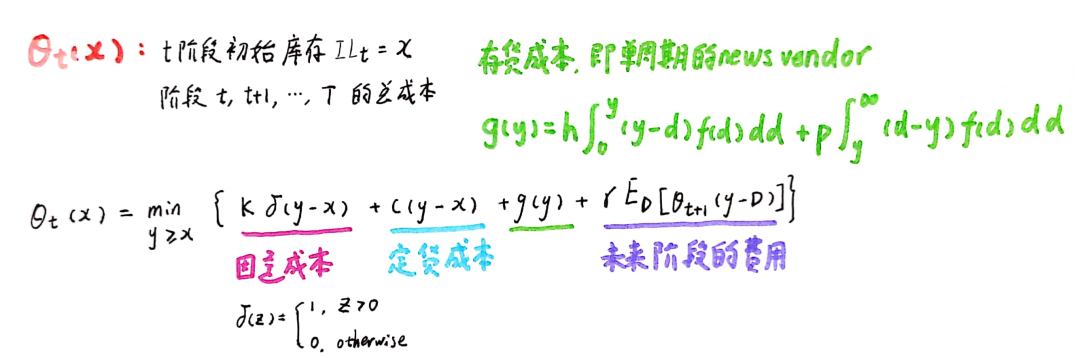 θt(x)：t阶段初始库存 ILt = x
阶段 t, t+1, ..., T 的总成本
存货成本, 即单周期的news vendor
g(y)=h∫₀^y (y-d)f(d)dd + p∫_y^∞ (d-y)f(d)dd
θt(x) = min y≥x { K δ(y-x) + c(y-x) + g(y) + r E_D[θt+1(y-D)]}
固定成本 定货成本 未来阶段的费用
δ(z)= { 1, z>0
0, otherwise